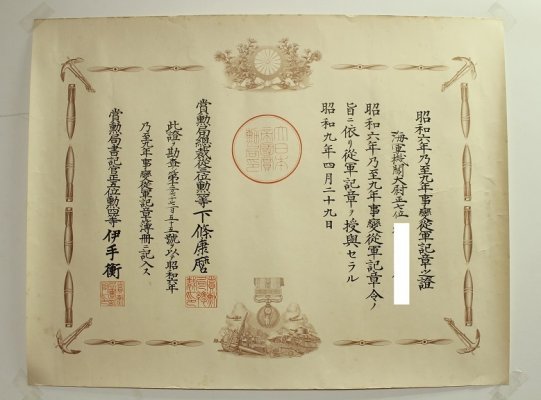 昭和六年乃至九年事變從軍記章之證
海軍機關大尉正七位
昭和六年乃至九年事變從軍記章令ノ
旨ニ依リ從軍記章ヲ授與セラル
昭和九年四月二十九日
大日本
帝國賞
勳局印
賞勳局總裁從位勳等下條康麿
此證ヲ勘査シ第號ヲ以テ昭和六年
乃至九年事變從軍記章簿册ニ記入ス
賞勳局書記官正五位勳四等伊手衡